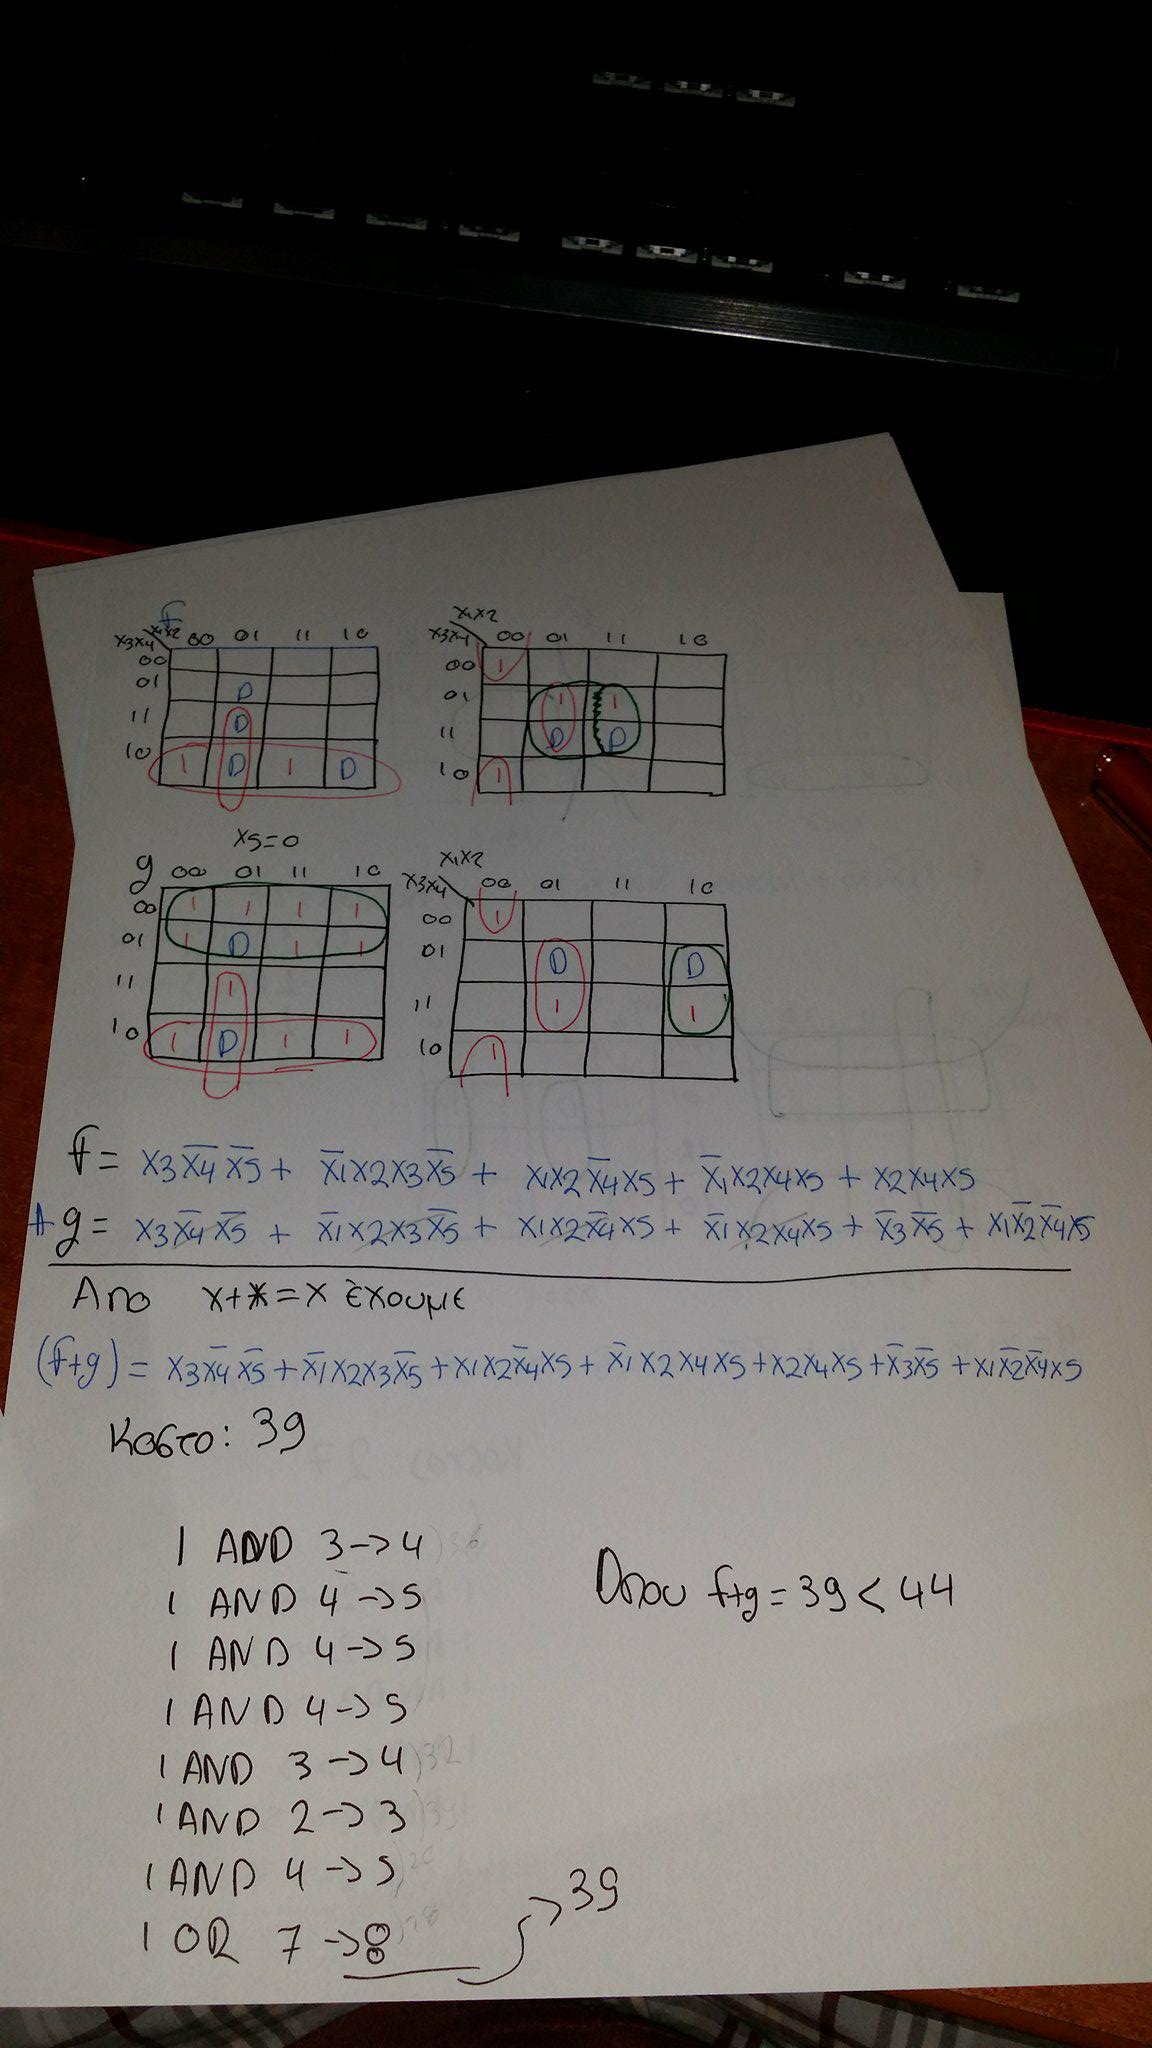 f
x1x2
x3x4 00 01 11 10
00
01 D
11 D
10 1 D 1 D
x1x2
x3x4 00 01 11 10
00 1
01 1 1
11 D D
10 1
x5=0
g 00 01 11 10
00 1 1 1 1
01 1 D 1 1
11 1
10 1 D 1 1
x1x2
x3x4 00 01 11 10
00 1
01 D D
11 1 1
10 1
f = x3x̅4x̅5 + x̅1x2x3x̅5 + x1x2x̅4x5 + x̅1x2x4x5 + x2x4x5
+ g = x3x̅4x̅5 + x̅1x2x3x̅5 + x1x2x̅4x5 + x̅1x2x4x5 + x̅3x̅5 + x1x̅2x̅4x5
Απο x+x=x έχουμε
(f+g) = x3x̅4x̅5 + x̅1x2x3x̅5 + x1x2x̅4x5 + x̅1x2x4x5 + x2x4x5 + x̅3x̅5 + x1x̅2x̅4x5
Κοστο: 39
1 AND 3 -> 4
1 AND 4 -> 5
1 AND 4 -> 5
1 AND 4 -> 5
1 AND 3 -> 4
1 AND 2 -> 3
1 AND 4 -> 5
1 OR 7 -> 8
-> 39
Οπου f+g = 39 < 44